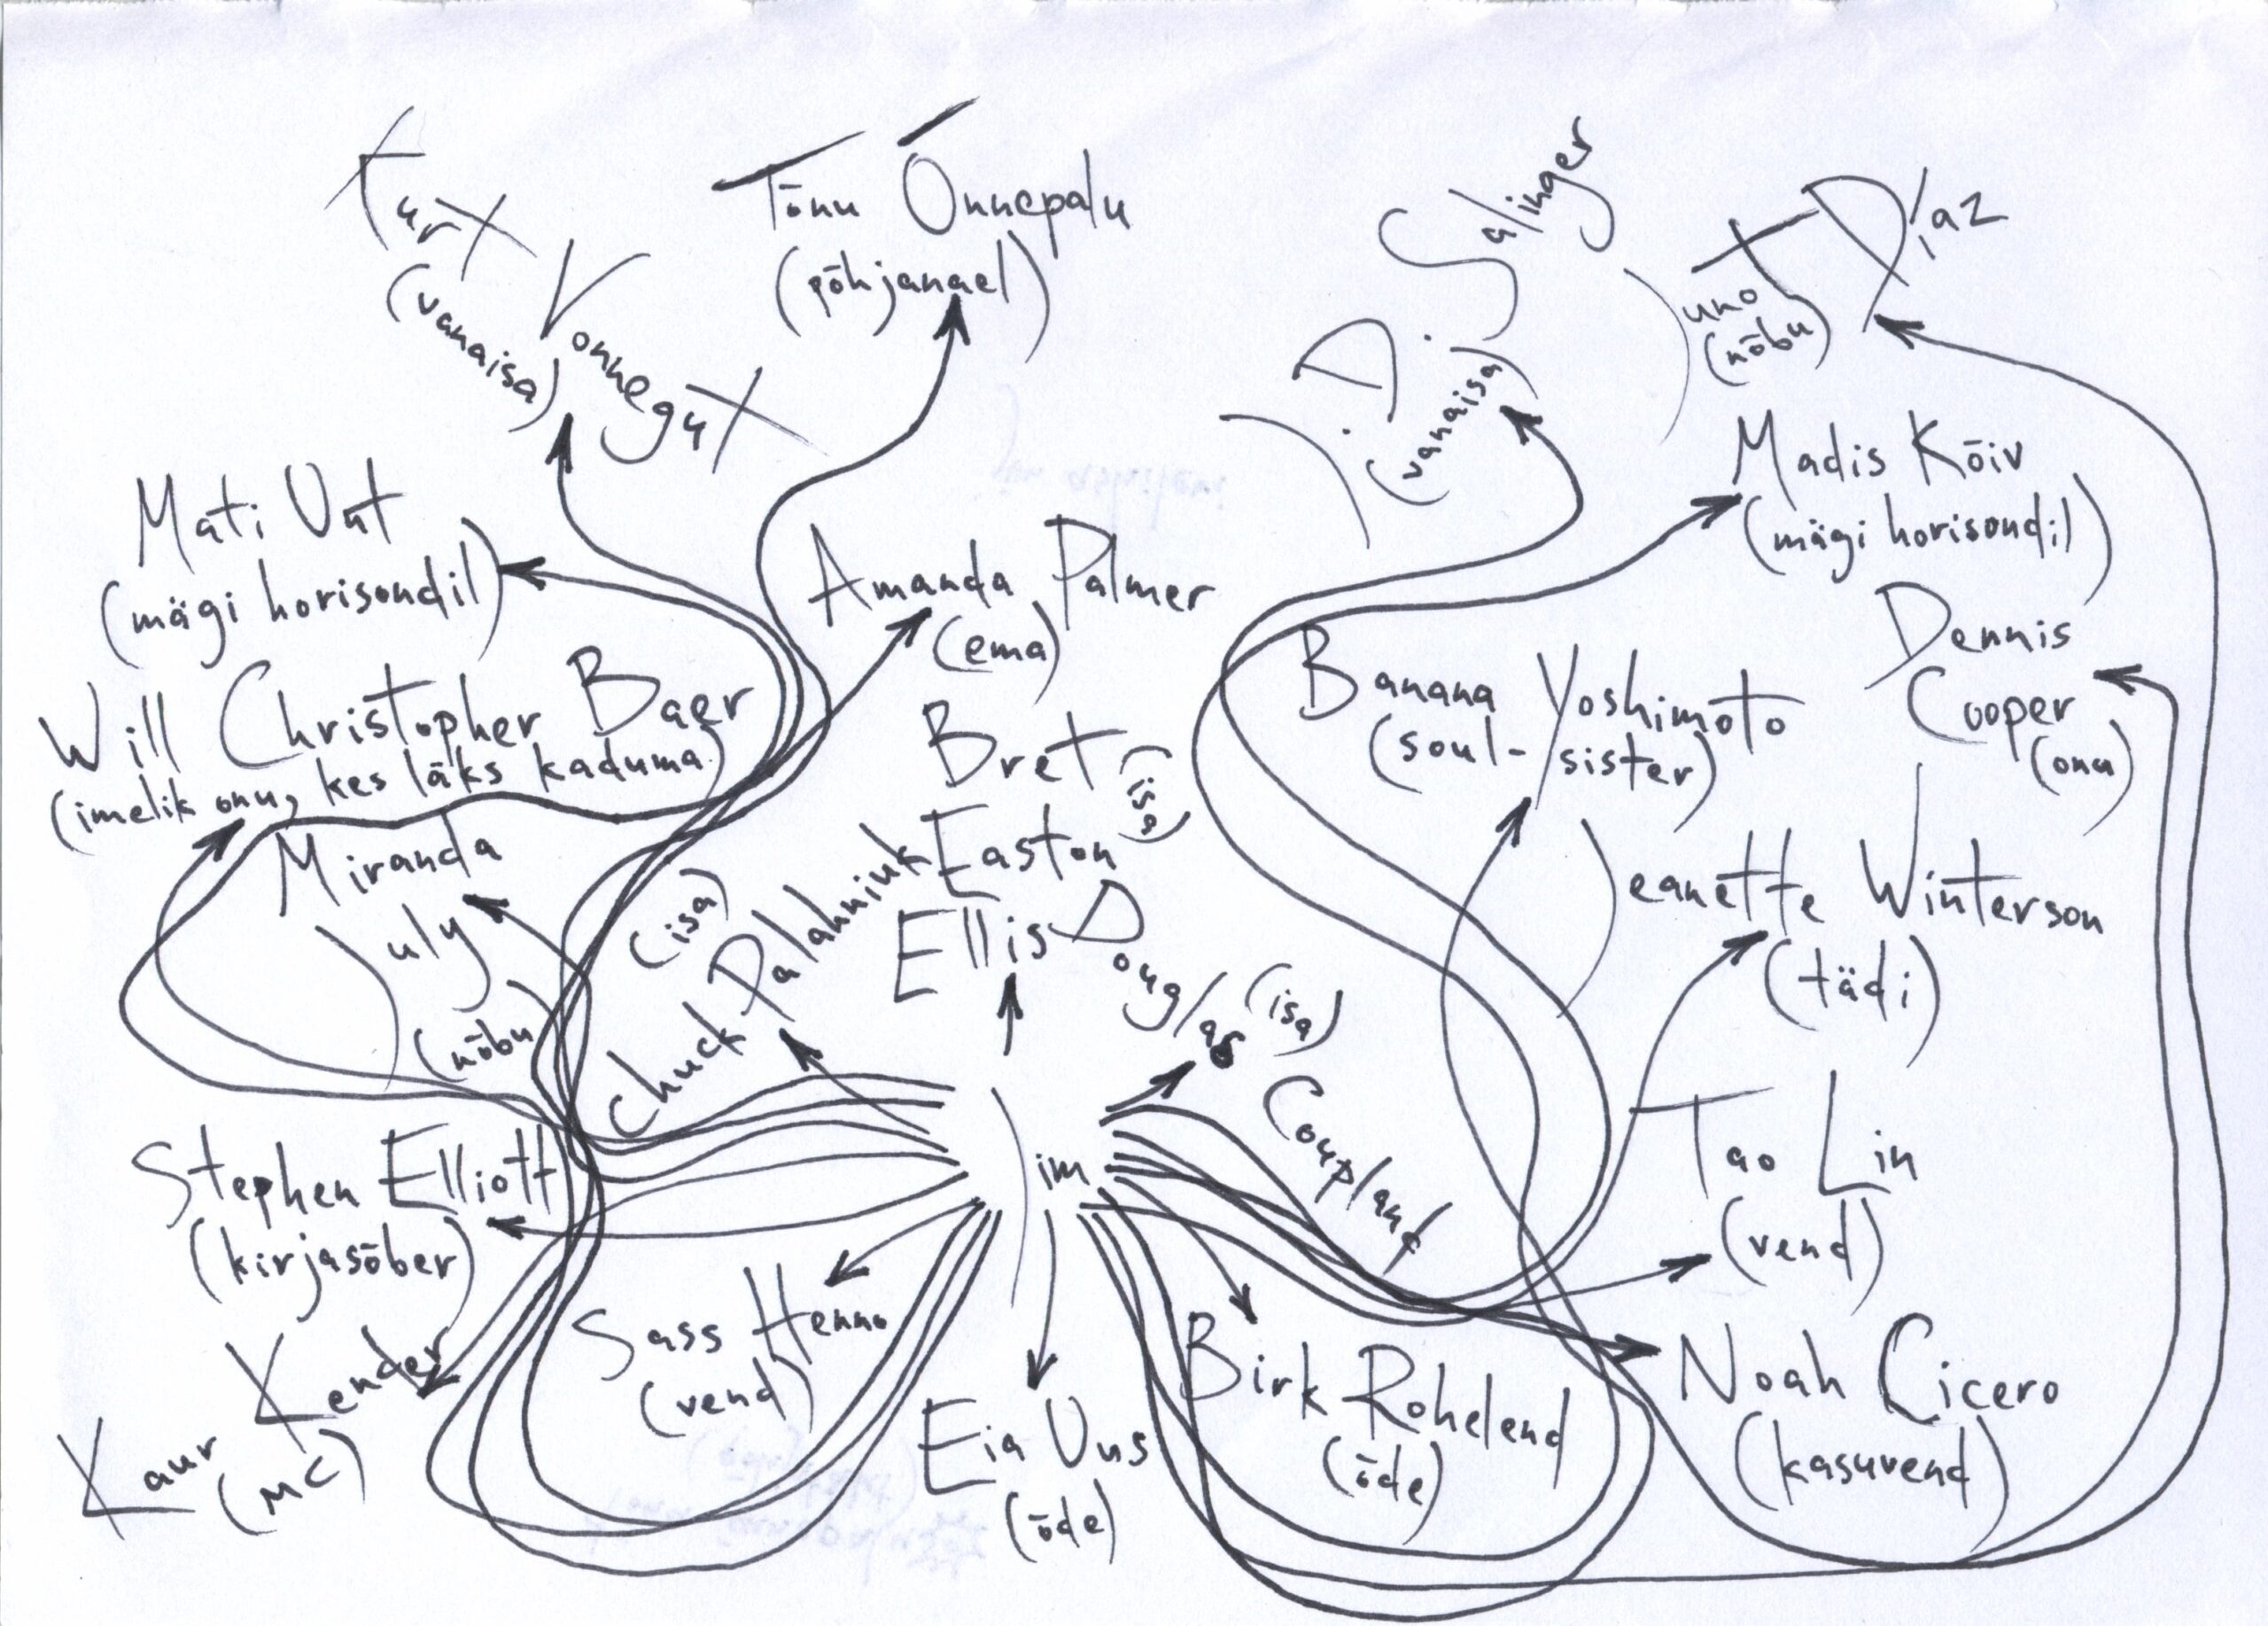 Kurt Vonnegut
(vanaisa)
Tõnu Õnnepalu
(põhjanael)
J. D. Salinger
(vanaisa)
Juno Díaz
(nõbu)
Mati Unt
(mägi horisondil)
Amanda Palmer
(ema)
Madis Kõiv
(mägi horisondil)
Will Christopher Baer
(imelik onu, kes läks kaduma)
Bret
Easton
Ellis
(isa)
Banana Yoshimoto
(soul-sister)
Dennis
Cooper
(onu)
Miranda
July
(nõbu)
Chuck Palahniuk
(isa)
Douglas Coupland
(isa)
Jeanette Winterson
(tädi)
Stephen Elliott
(kirjasõber)
Jim
Tao Lin
(vend)
Kaur Kender
(MC)
Sass Henno
(vend)
Eia Uus
(õde)
Birk Rohelend
(õde)
Noah Cicero
(kasuvend)